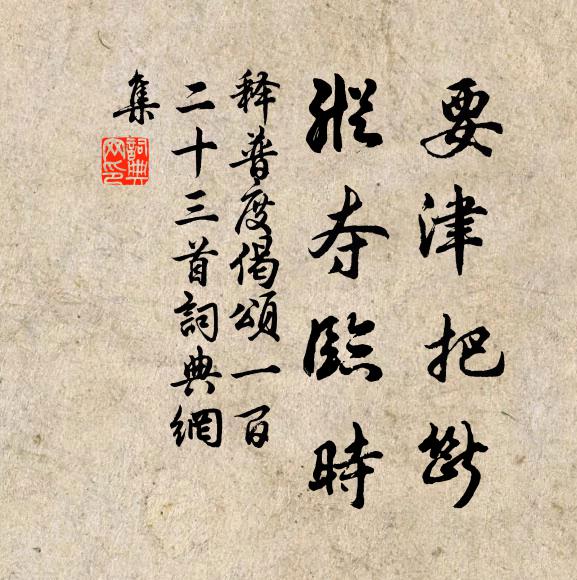 要津把断
纵夺临时
释普度偈颂一百
二十三首詞典網
集
詞典網印